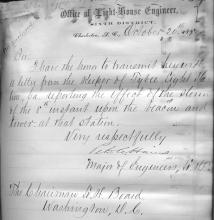 Office of Light-House Engineer,
SIXTH DISTRICT,
Charleston, S.C. October 20th
Sir:
I have the honor to transmit herewith
a letter from the Keeper of Tybee Light Sta-
tion, Ga. reporting the effect of the storm
of the instant upon the beacon and
tower at that Station.
Very respectfully
Major of Engineers, U.S.
The Chairman L.H. Board
Washington, D.C.